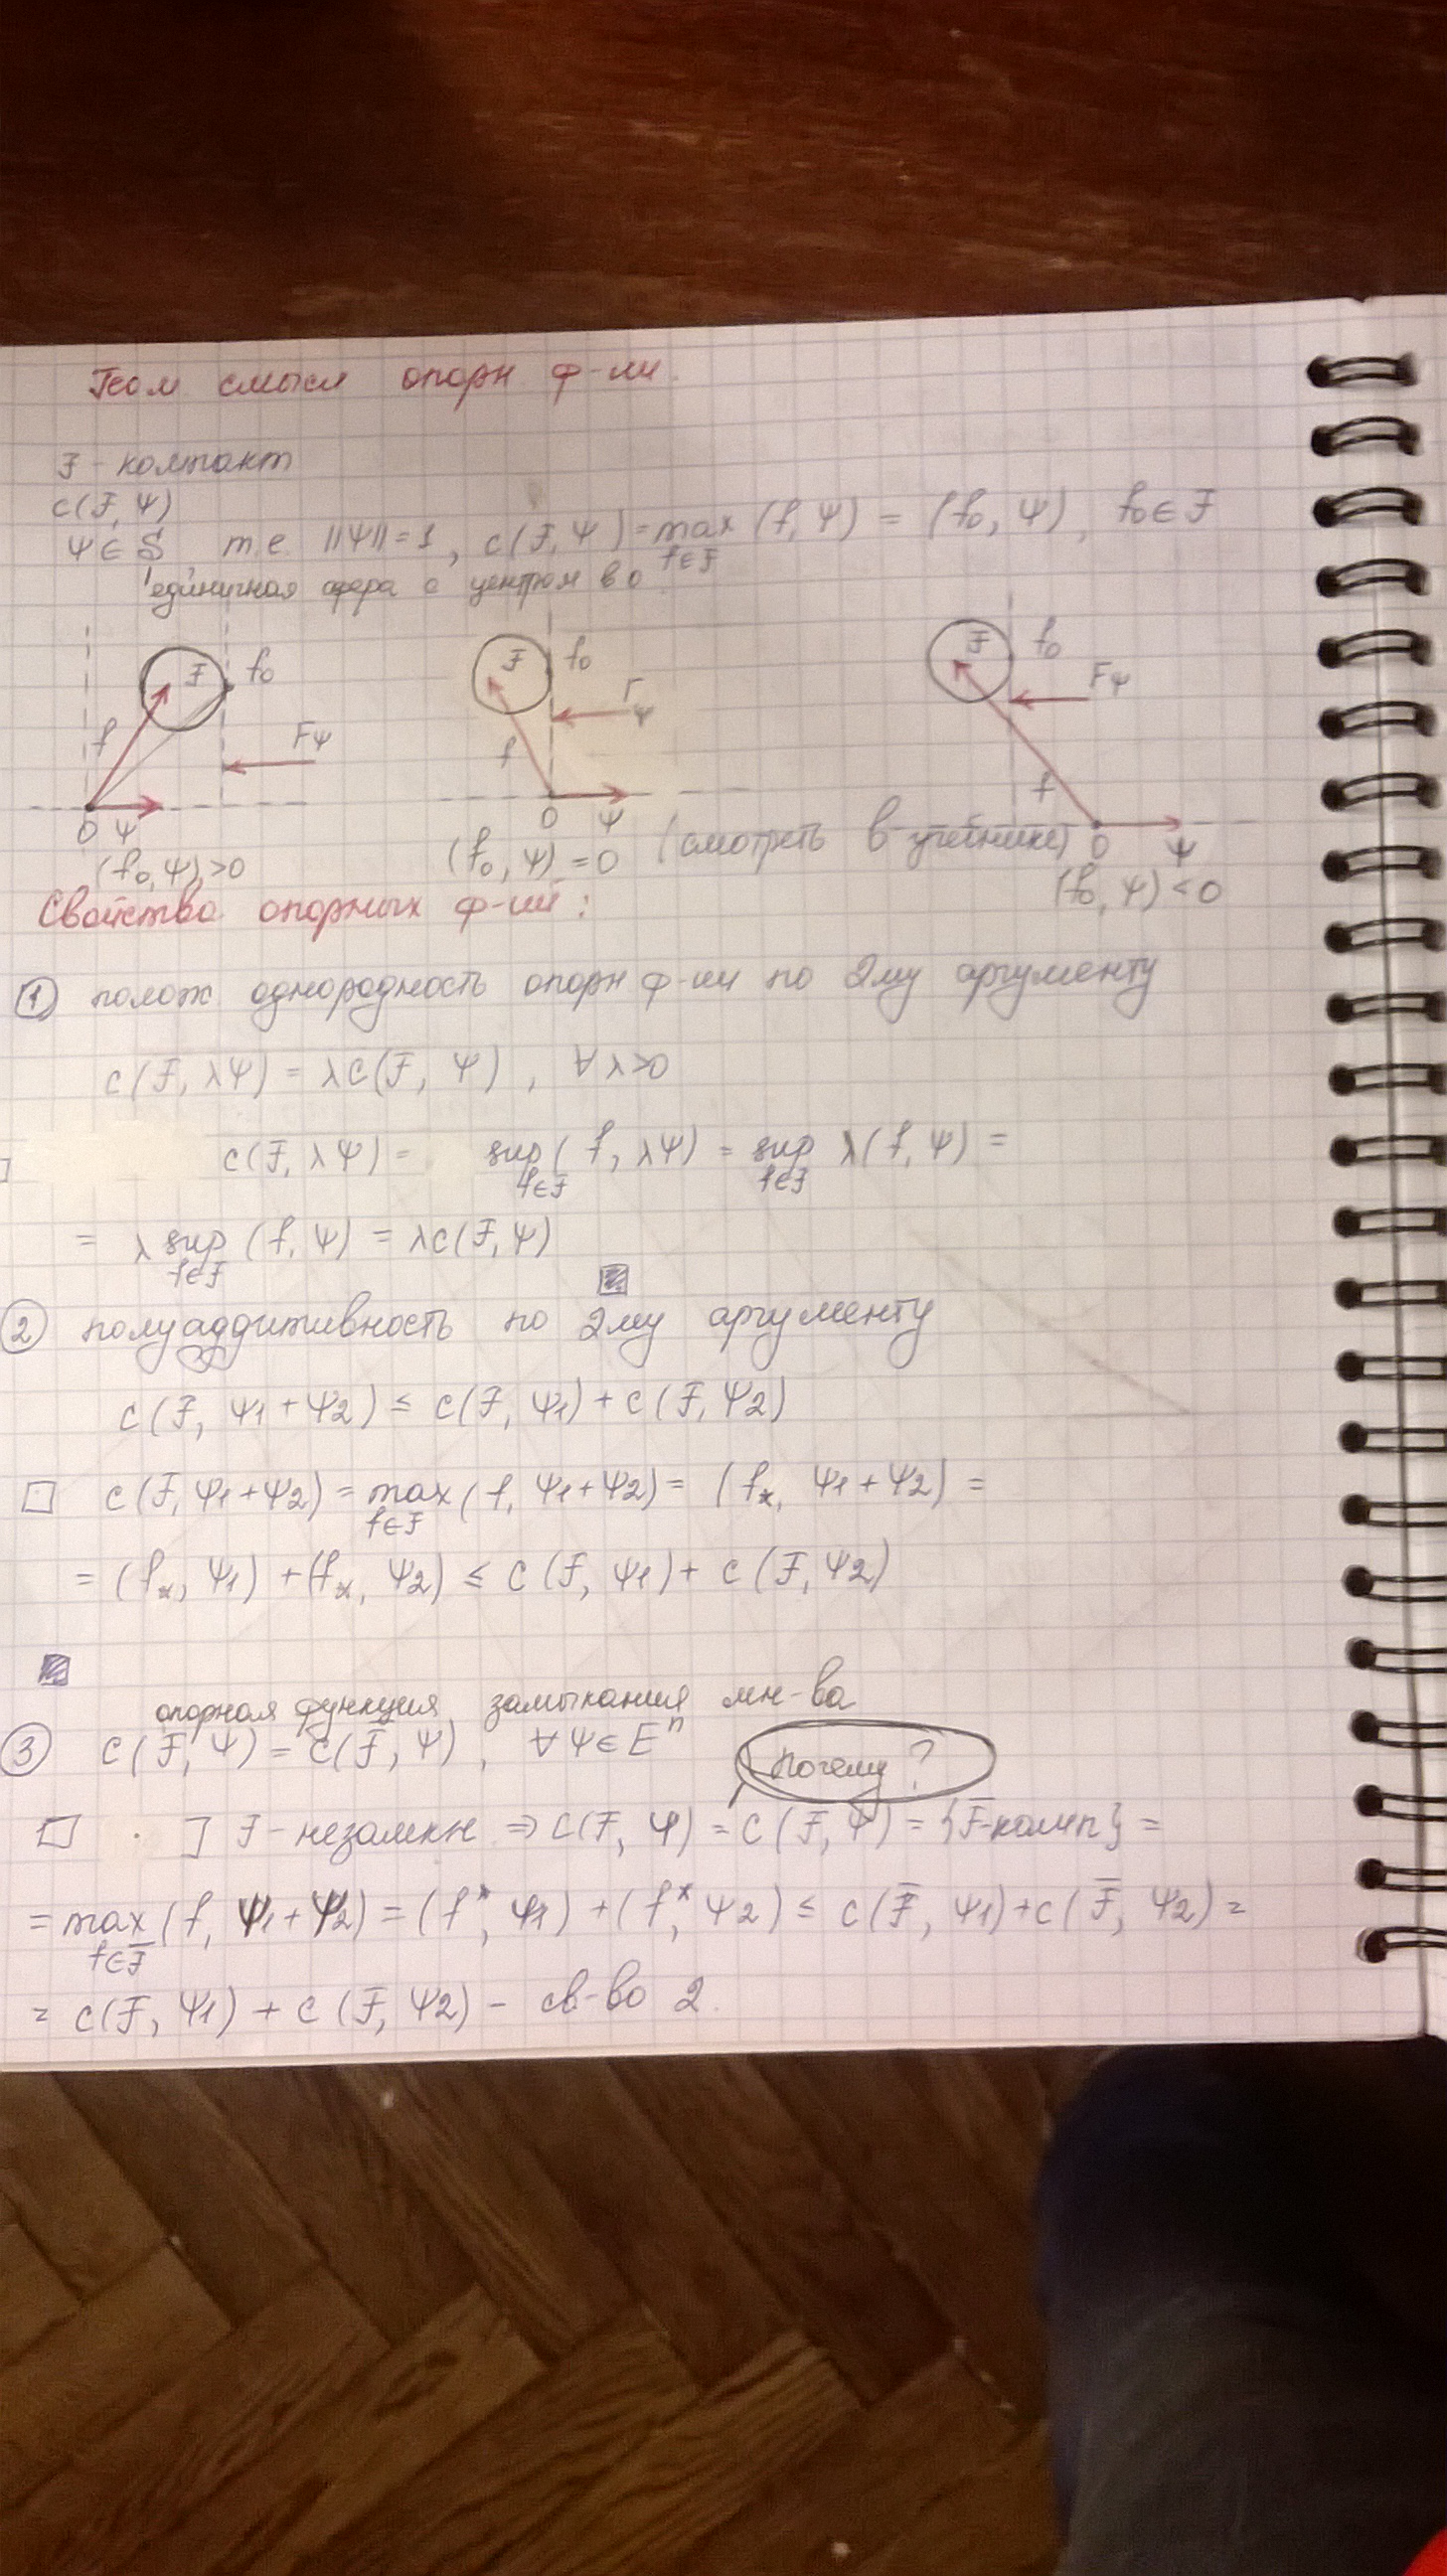 Геом смысл опорн ф-ии.
F - компакт
c(F, Ψ)
Ψ ∈ S, т.е. ||Ψ|| = 1, c(F, Ψ) = max (f, Ψ) = (f₀, Ψ), f₀ ∈ F
f∈F
единичная сфера с центром в 0
F f₀ F f₀ F f₀
f FΨ f ГΨ f FΨ
0 Ψ 0 Ψ 0 Ψ
(f₀, Ψ) > 0 (f₀, Ψ) = 0 (смотреть в учебнике) (f₀, Ψ) < 0
Свойства опорных ф-ий:
① полож однородность опорн ф-ии по 2му аргументу
c(F, λΨ) = λc(F, Ψ), ∀ λ>0
c(F, λΨ) = sup (f, λΨ) = sup λ(f, Ψ) =
f∈F f∈F
= λ sup (f, Ψ) = λc(F, Ψ)
f∈F
② полуаддитивность по 2му аргументу
c(F, Ψ1 + Ψ2) ≤ c(F, Ψ1) + c(F, Ψ2)
□ c(F, Ψ1 + Ψ2) = max (f, Ψ1 + Ψ2) = (f*, Ψ1 + Ψ2) =
f∈F
= (f*, Ψ1) + (f*, Ψ2) ≤ c(F, Ψ1) + c(F, Ψ2)
опорная функция замыкания мн-ва
③ c(F, Ψ) = c(F̅, Ψ), ∀ Ψ ∈ Eⁿ
Почему?
□ ] F - незамкн ⇒ c(F, Ψ) = c(F̅, Ψ) = {F̅-комп} =
= max (f, Ψ1 + Ψ2) = (f*, Ψ1) + (f*, Ψ2) ≤ c(F̅, Ψ1) + c(F̅, Ψ2) =
f∈F̅
= c(F, Ψ1) + c(F, Ψ2) - св-во 2.